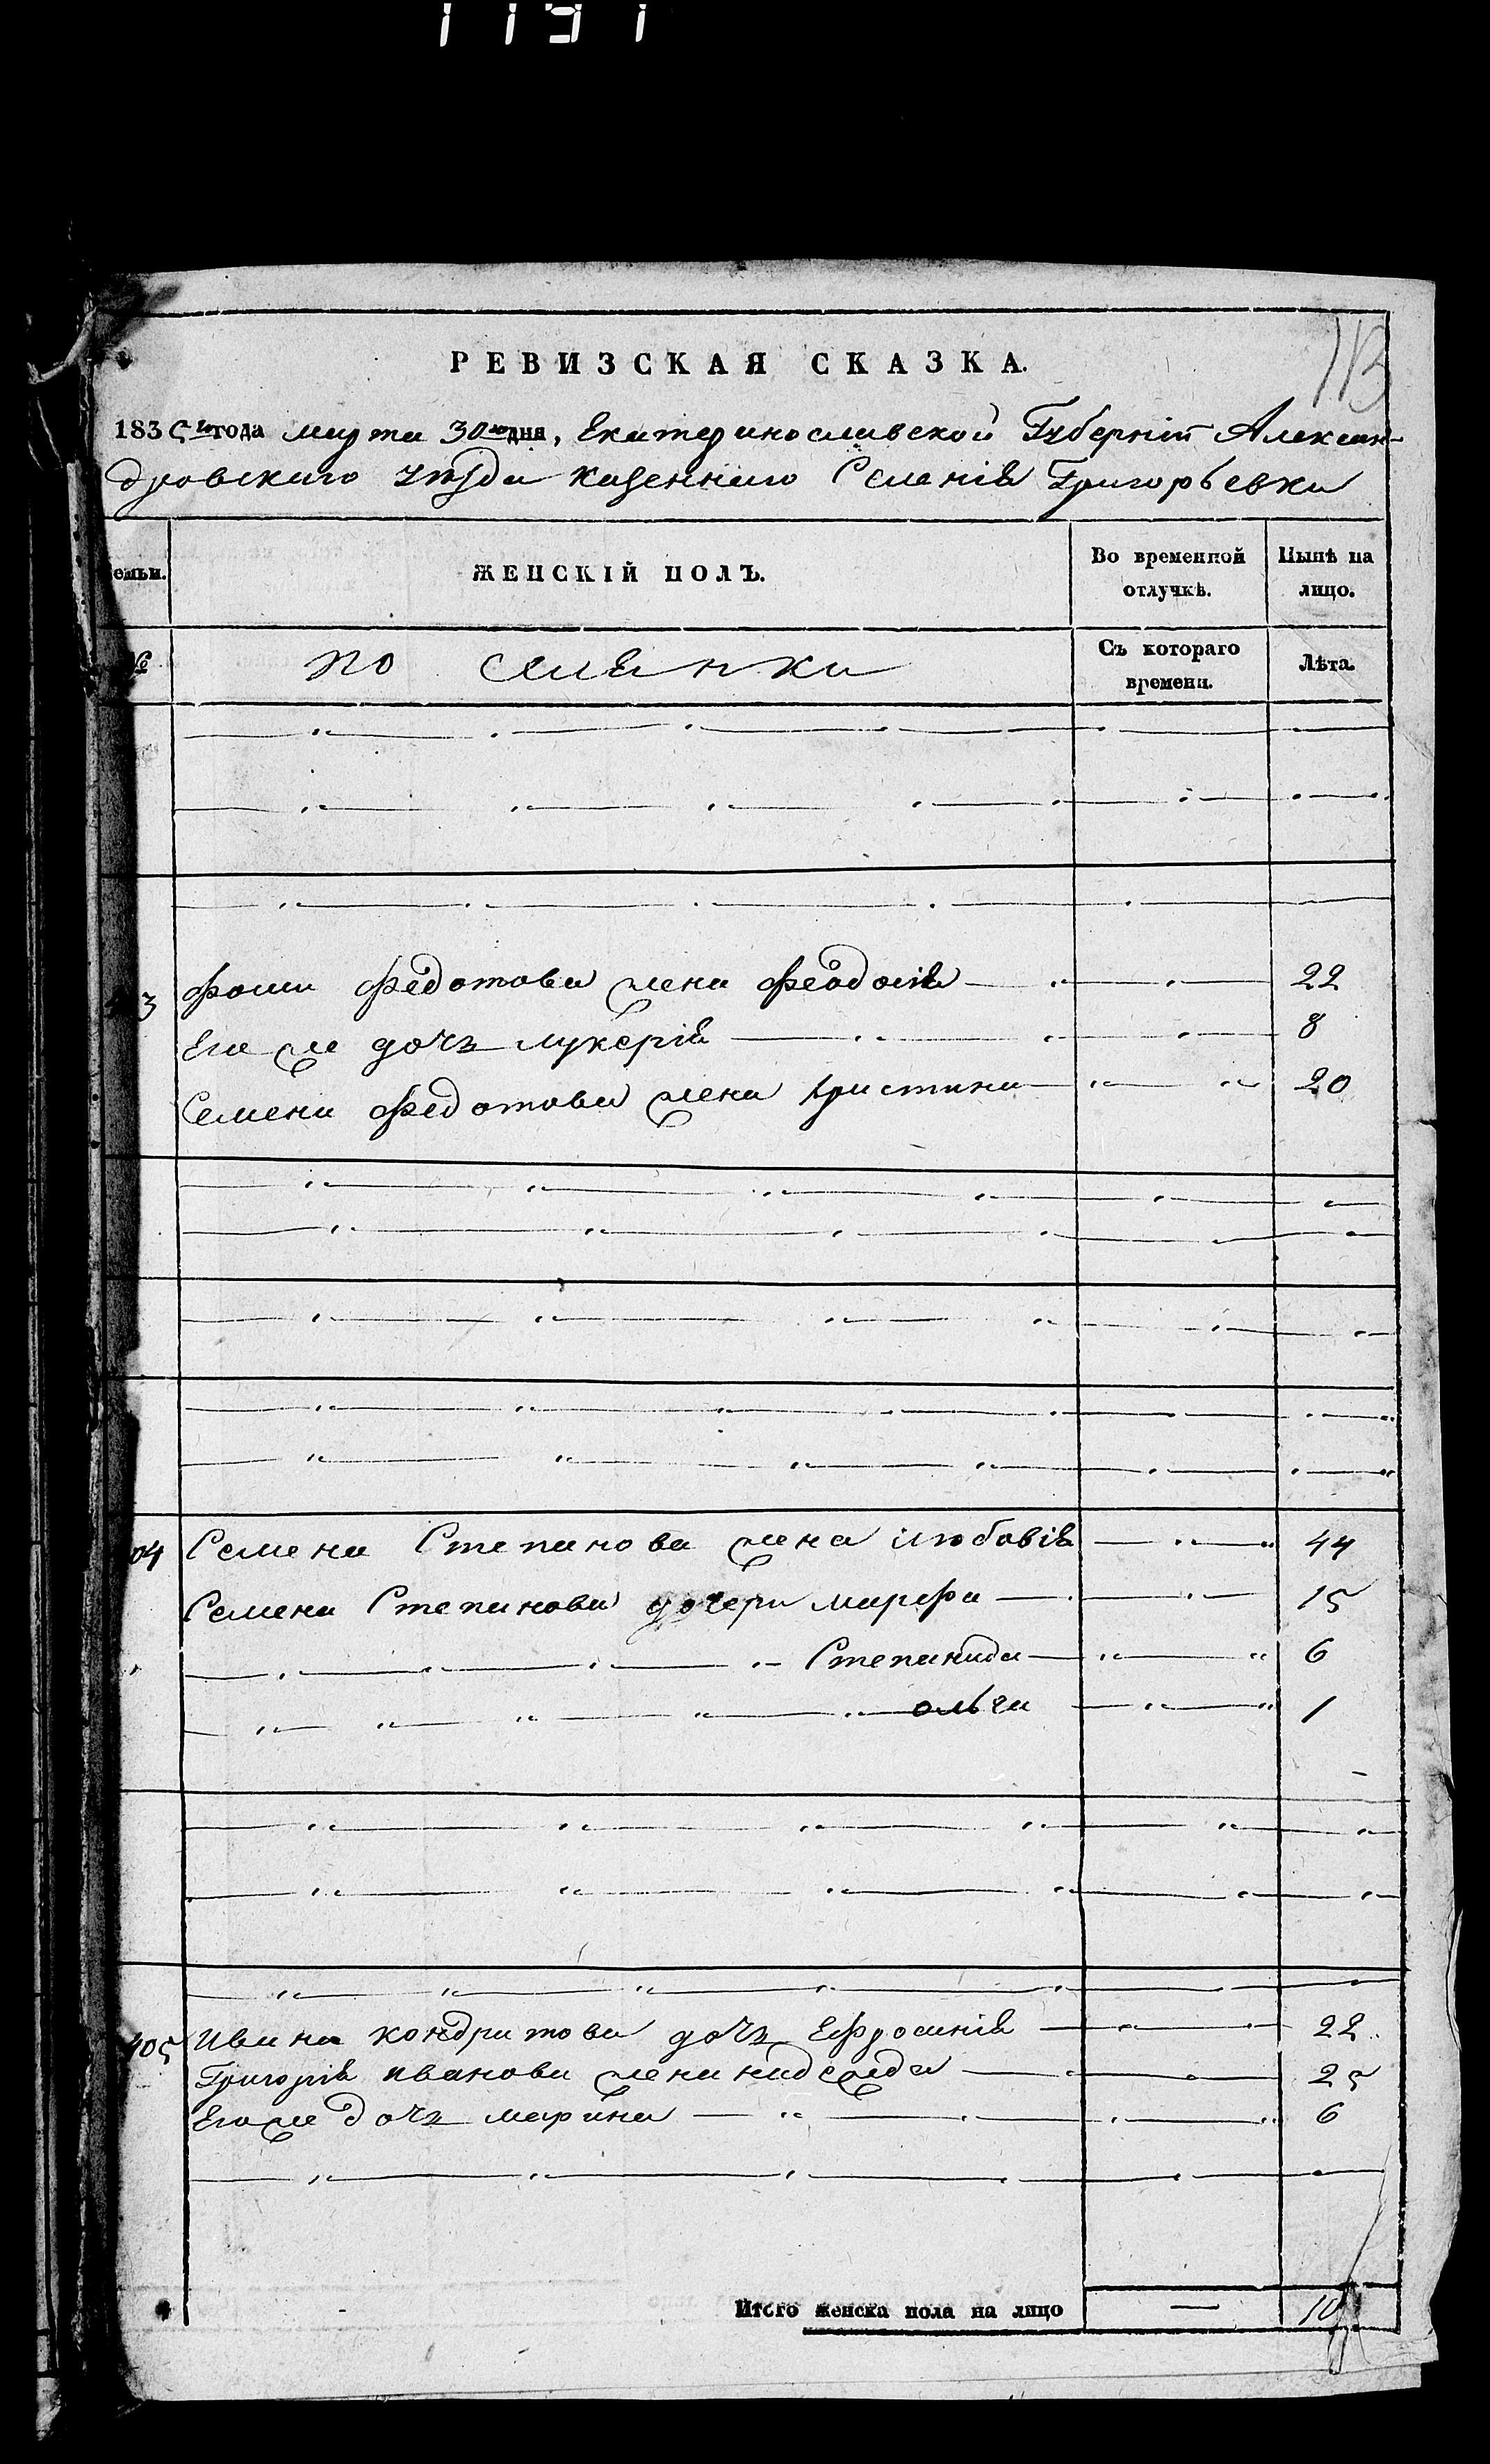 113
РЕВИЗСКАЯ СКАЗКА.
1835го года марта 30го дня, Екатеринославской Губерніи Алексан-
дровскаго уѣзда казеннаго Селенія Григорьевки
емьи. ЖЕНСКІЙ ПОЛЪ. Во временной отлучкѣ. Нынѣ на лицо.
№ Съ котораго времени. Лѣта.
3 Фомы Федотова жена Феодосія 22
Его же дочь лукерія 8
Семена Федотова жена христина 20
04 Семена Степанова жена любовія 44
Семена Степанова дочери марфа 15
Степанида 6
ольга 1
405 Ивана кондратова дочь Ефросинія 22
Григорія иванова жена надежда 25
Его же дочь марина 6
Итого женска пола на лицо — 10